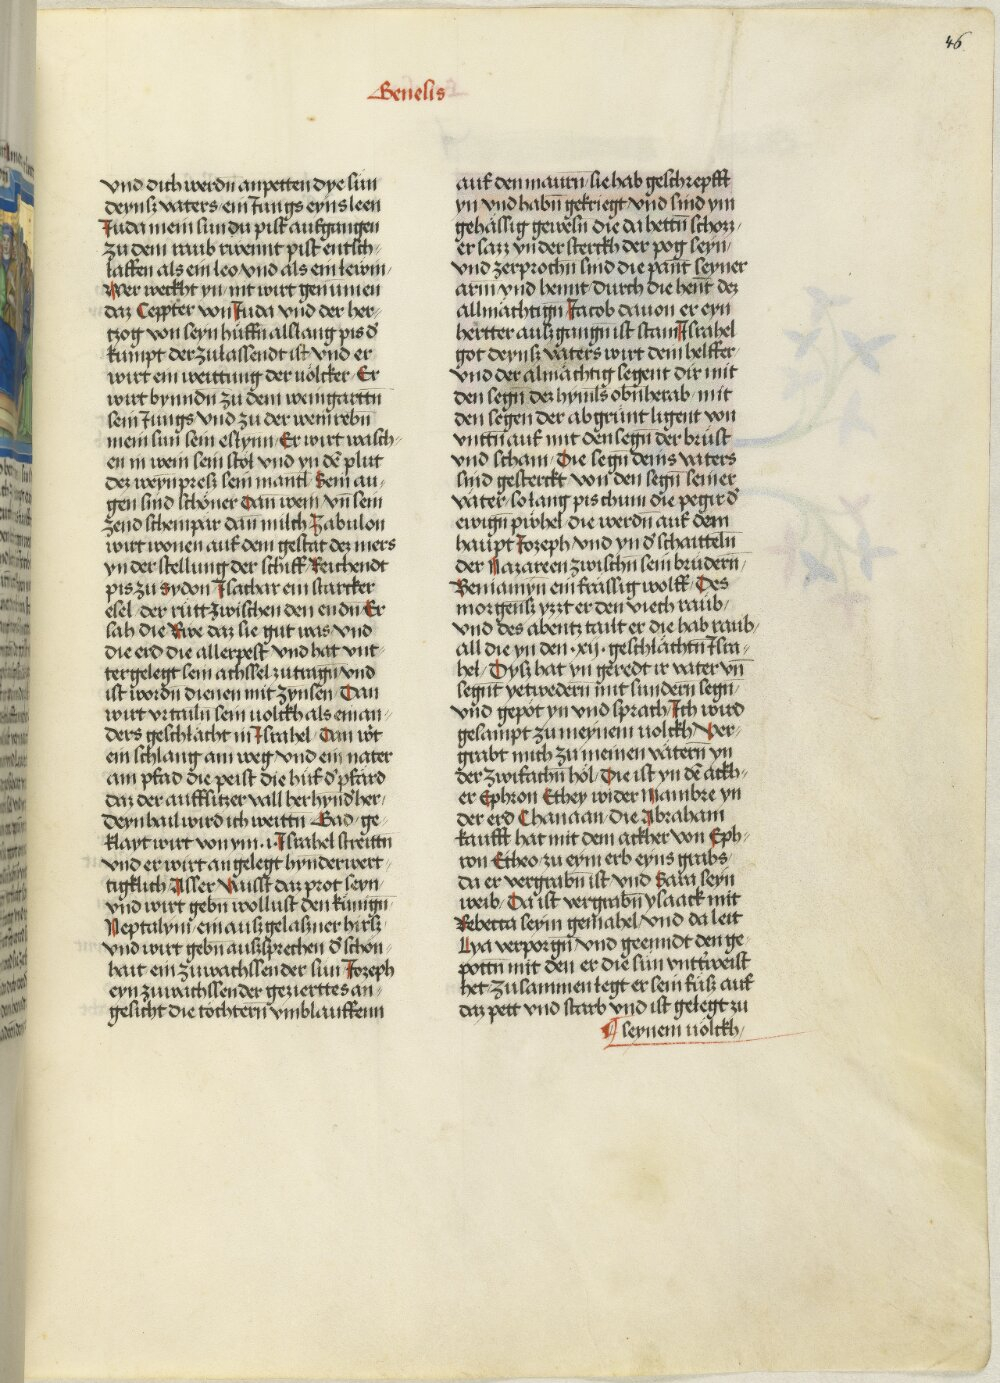 46
Genesis
vnd dich werdn̄ anpetten dye sün
deynsz vaters / ein Jungs eyns leen
Juda mein sün du pist aufgangen
zu dem raub wennt pist entsch⸗
laffen als ein leo / vnd als ein lewin /
Wer weckht yn / nit wirt genumen
daz Ceppter von Juda vnd der her⸗
tzog von seyn hüffn̄ alslang pis d͛
kumpt der zulassendt ist / vnd er
wirt ein weittung der uölcker / Er
wirt bynndn̄ zu dem weingarttn̄
sein Jungs vnd zu der weinrebn̄
mein sun sein eslynn / Er wirt wasch⸗
en in wein sein stol vnd yn dē plut
dez weynpresz sein mantl / Sein au⸗
gen sind schöner Dan wein vn̄ sein
zend schempar dan̄ milch / Zabulon
wirt wonen auf dem gestat dez mers
yn der stellung der schiff Reichendt
pis zu Sydon / Isachar ein starcker
esel / der rütt zwischen den endn̄ / Er
sah die Rwe daz sie gut was / vnd
die erd die allerpest vnd hat vnt⸗
tergelegt sein achssel zu tragn̄ vnd
ist wordn̄ dienen mit zynsen / Dan
wirt vrtailn̄ sein uolckh als ein an⸗
ders geschlächt in Israhel / Dan wirt
ein schlang am weg / vnd ein nater
am pfad die peist die huf d͛ pfärd
daz der auffsitzer vall herhynd͛her /
deyn hail wird ich weittn̄ / Gad / ge⸗
klayt wirt von ym .i. Israhel streittn̄
vnd er wirt angelegt hynderwert⸗
tigklich / Asser vaisst daz prot seyn /
vnd wirt gebn̄ wollust den künign̄
Neptalym / ein auszgelasner hirsz /
vnd wirt gebn̄ auszsprechen d͛ schön⸗
hait ein zuwachssender sün Jozeph
eyn zuwachssender gezierttes an⸗
gesicht die töchtern̄ vmblauffenn
auf den maurn̄ / sie hab geschrepfft
yn vnd habn̄ gekriegt vnd sind ym
gehässig gewesn̄ die da hettn̄ schozz /
er sazz yn der sterckh der pog seyn /
vnd zerprochn̄ sind die pant seyner
arm vnd hennt durch die hent dez
allmächtign̄ Jacob dauon er eyn
hertter auszgangn̄ ist stain Israhel
got deynsz vaters wirt dein helffer /
vnd der almächtig segent dir mit
den segn̄ dez hymls obn̄ herab / mit
den segen der abgrunt ligent von
vnttn̄ auf mit den segn̄ der brüst
vnd scham / Die segn̄ deins vaters
sind gesterckt von den segn̄ seiner
väter / solang pis chum die pegir d͛
ewign̄ püchel / die werdn̄ auf dem
haupt Jozeph / vnd yn d͛ schaitteln̄
der Nazareen zwischn̄ sein brüdern̄ /
Beniamyn ein frässig wolff / Des
morgensz yzzt er den viech raub /
vnd des abentz tailt er die hab raub /
all die yn den .xij. geschlächtn̄ Isra⸗
hel / Dysz hat yn geredt ir vater vn̄
segnt yetwedern̄ mit sundern̄ segn̄ /
vnd gepot yn vnd sprach / Ich wird
gesampt zu meynem uolckh / Ver⸗
grabt mich zu meinen vätern̄ yn
der zwifachn̄ höl / Die ist yn dē ackh⸗
er Ephron Ethey wider Mambre yn
der erd Chanaan / die Abraham
kaufft hat mit dem ackher von Eph⸗
ron Etheo / zu eym erb eyns grabs /
da er vergrabn̄ ist / vnd Sara seyn
weib / Da ist vergrabn̄ ysaack mit
Rebecca seym gemahel / vnd da leit
Lya verporgn̄ / vnd geenndt den ge⸗
pottn̄ mit den er die sün vnttweist
het zusammen legt er sein füsz auf
daz pett vnd starb vnd ist gelegt zu
seynem uolckh /